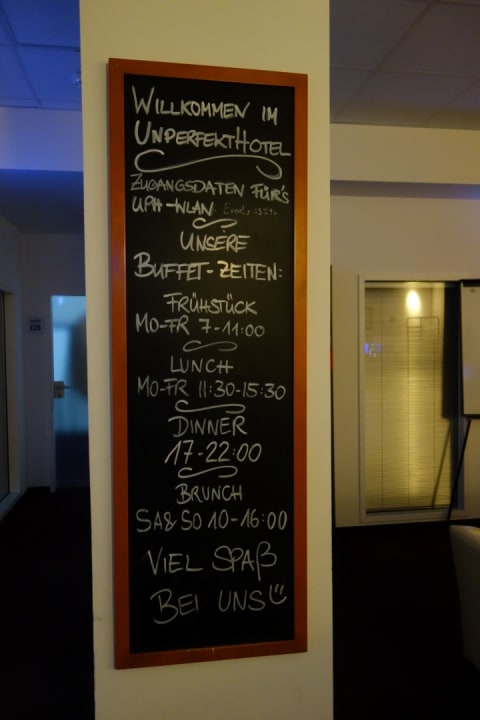 WILLKOMMEN IM
UNPERFEKTHOTEL
ZUGANGSDATEN FÜR'S
UPH-WLAN:
UNSERE
BUFFET-ZEITEN:
FRÜHSTÜCK
MO-FR 7-11:00
LUNCH
MO-FR 11:30-15:30
DINNER
17-22:00
BRUNCH
SA & SO 10-16:00
VIEL SPAß
BEI UNS